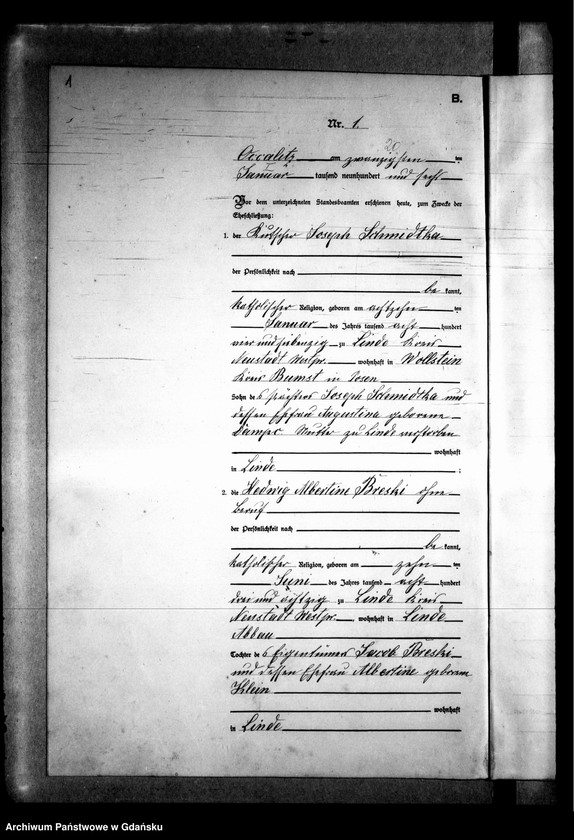 1
B.
Nr. 1.
am zwanzigsten ten
Januar tausend neunhundert und sechs
Vor dem unterzeichneten Standesbeamten erschienen heute, zum Zwecke der
Eheschließung:
1. der Kutscher Joseph Schmidtka
der Persönlichkeit nach
be kannt,
katholischer Religion, geboren am achtzehn ten
Januar des Jahres tausend acht hundert
vier und siebenzig zu Linde Kreis
Neustadt Westpr. wohnhaft in Wollstein
Kreis Bomst in Posen
Sohn des Pächters Joseph Schmidtka und
dessen Ehefrau Augustina geborene
Mutter zu Linde verstorben
wohnhaft
in Linde ;
2. die Hedwig Albertine Breski ohne
Beruf
der Persönlichkeit nach
be kannt,
katholischer Religion, geboren am zehn ten
Juni des Jahres tausend acht hundert
drei und achtzig zu Linde Kreis
Neustadt Westpr. wohnhaft in Linde
Abbau
Tochter des Eigentümers Jacob Breski
und dessen Ehefrau Albertine geborene
Klein
wohnhaft
in Linde
Archiwum Państwowe w Gdańsku